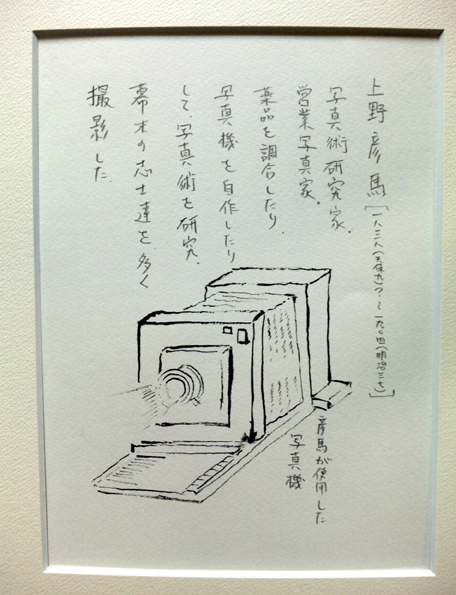 上野彦馬[一八三八(天保九)?〜一九〇四(明治三七)]
写真術研究家.
営業写真家.
薬品を調合したり.
写真機を自作したり
して.写真術を研究.
幕末の志士達を多く
撮影した
彦馬が使用した
写真機